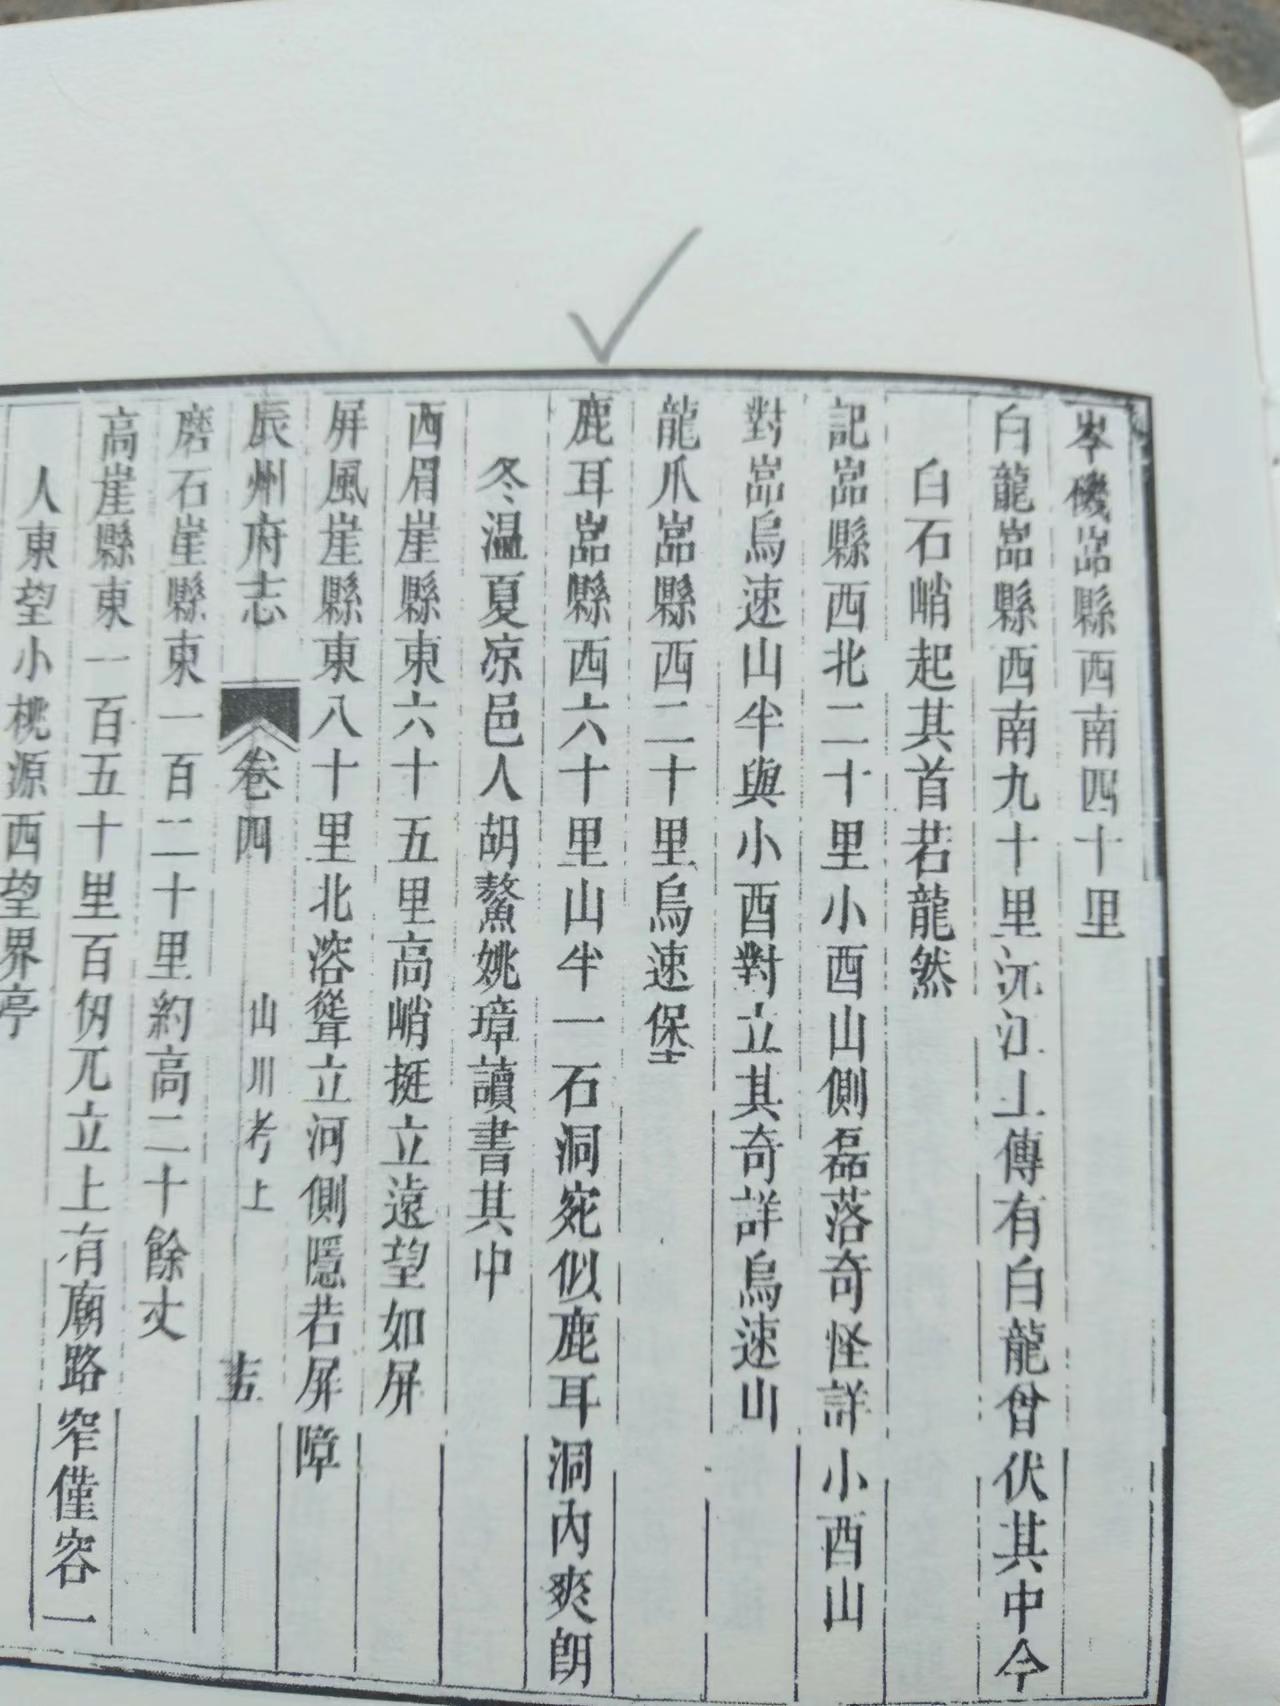 岑磯嵓縣西南四十里
白龍嵓縣西南九十里沅江上傳有白龍曾伏其中今
白石峭起其首若龍然
記嵓縣西北二十里小酉山側磊落奇怪詳小酉山
對嵓烏速山半與小酉對立其奇詳烏速山
龍爪嵓縣西二十里烏速保
鹿耳嵓縣西六十里山半一石洞宛似鹿耳洞內爽朗
冬溫夏凉邑人胡鰲姚璋讀書其中
西眉崖縣東六十五里高峭挺立遠望如屏
屏風崖縣東八十里北溶聳立河側隱若屏障
辰州府志 卷四 山川考上 十五
磨石崖縣東一百二十里約高二十餘丈
高崖縣東一百五十里百仞兀立上有廟路窄僅容一
人東望小桃源西望界亭